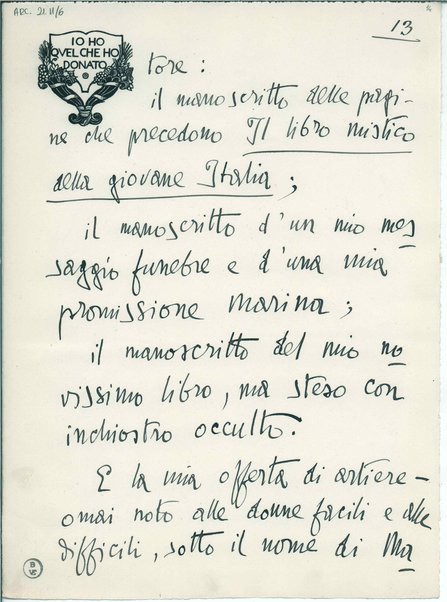 ARC. 21.11/6
13
IO HO
QVEL CHE HO
DONATO
tore:
il manoscritto delle pagi-
ne che precedono Il libro mistico
della giovane Italia;
il manoscritto d'un mio mes
saggio funebre e d'una mia
promissione marina;
il manoscritto del mio no
vissimo libro, ma steso con
inchiostro occulto.
E la mia offerta di artiere-
omai noto alle donne facili e alle
difficili, sotto il nome di Ma